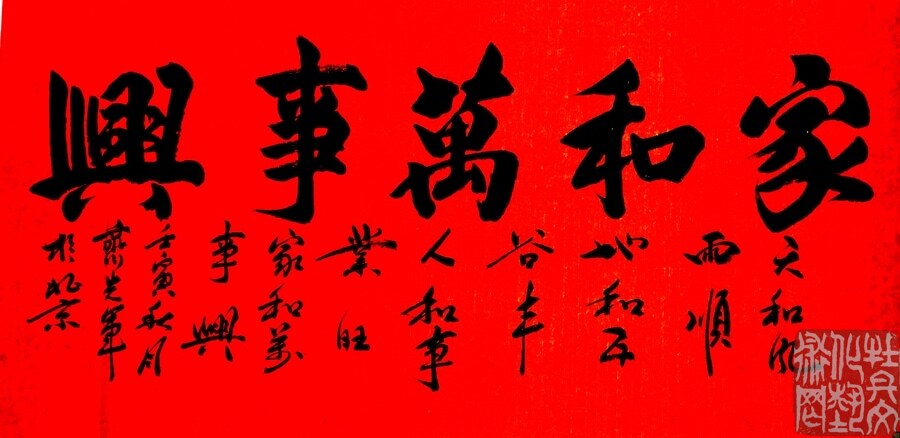 家和萬事興
天和风
雨順
地和五
谷丰
人和事
業旺
家和萬
事興
壬寅秋月
於北京